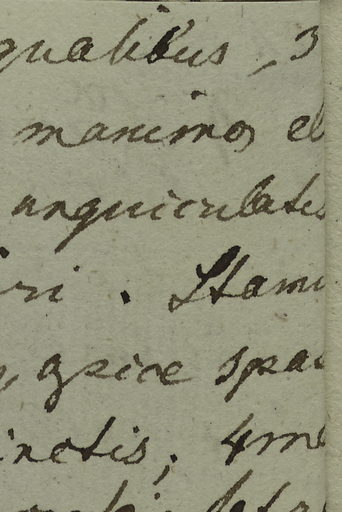 qualibus, 3
maximo, et
unguiculatis
iri. Stami
apice spa
inctis, 4me